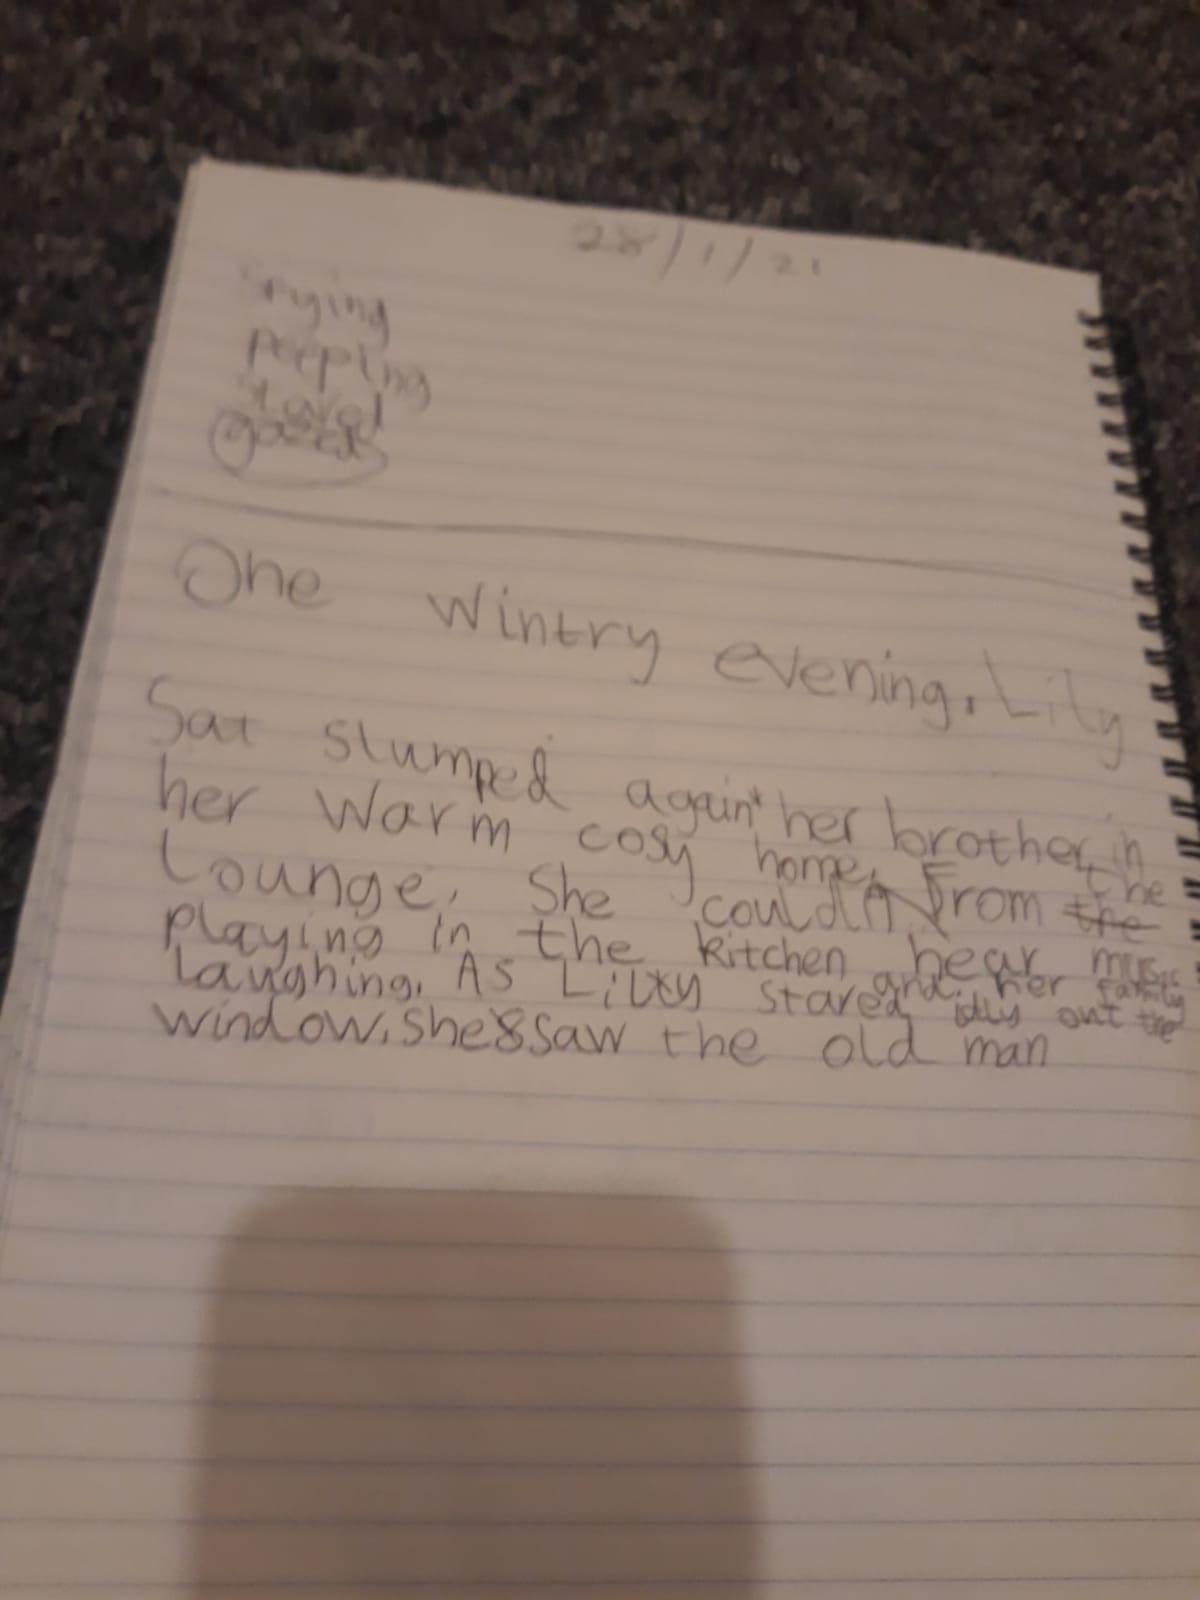 28/1/21
peeping
stared
gazed
One wintry evening, Lily
Sat slumped again* her brother, in
her warm cosy home, From the
Lounge, She could the
playing in the kitchen hear music
Laughing. As Lily stared, and her family idly out the
window, she saw the old man